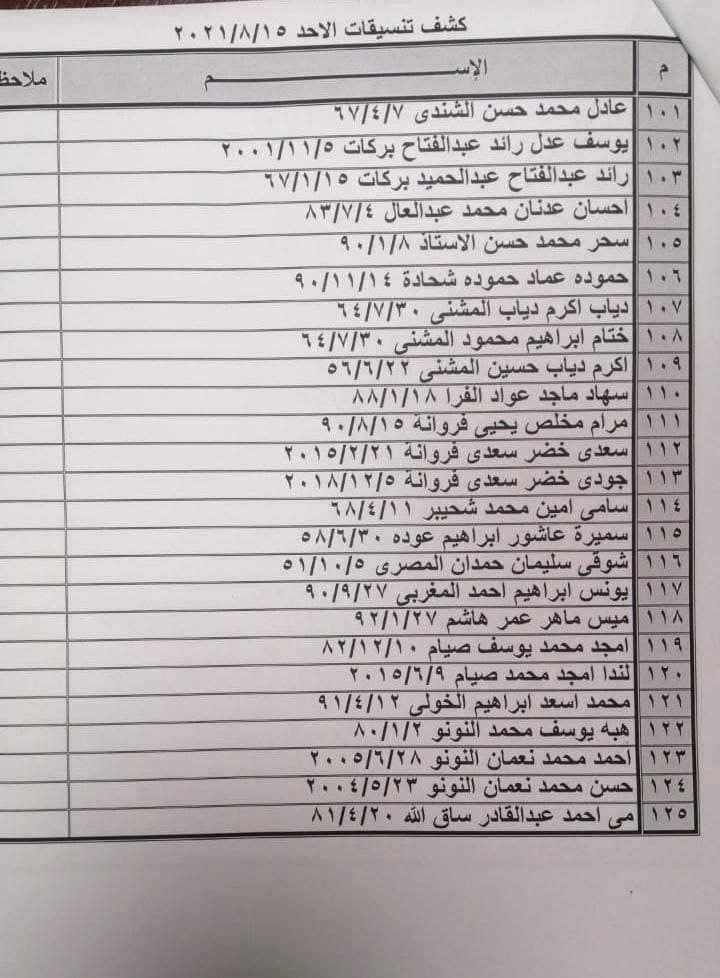 كشف تنسيقات الاحد ٢٠٢١/٨/١٥
م الإســـــم ملاحظ
١٠١ عادل محمد حسن الشندى ٦٧/٤/٧
١٠٢ يوسف عدل رائد عبدالفتاح بركات ٢٠٠١/١١/٥
١٠٣ رائد عبدالفتاح عبدالحميد بركات ٦٧/١/١٥
١٠٤ احسان عدنان محمد عبدالعال ٨٣/٧/٤
١٠٥ سحر محمد حسن الاستاذ ٩٠/١/٨
١٠٦ حموده عماد حموده شحادة ٩٠/١١/١٤
١٠٧ دياب اكرم دياب المشنى ٦٤/٧/٣٠
١٠٨ ختام ابراهيم محمود المشنى ٦٤/٧/٣٠
١٠٩ اكرم دياب حسين المشنى ٥٦/٦/٢٢
١١٠ سهاد ماجد عواد الفرا ٨٨/١/١٨
١١١ مرام مخلص يحيى فروانة ٩٠/٨/١٥
١١٢ سعدى خضر سعدى فروانة ٢٠١٥/٢/٢١
١١٣ جودى خضر سعدى فروانة ٢٠١٨/١٢/٥
١١٤ سامى امين محمد شحيبر ٦٨/٤/١١
١١٥ سميرة عاشور ابراهيم عوده ٥٨/٦/٣٠
١١٦ شوقى سليمان حمدان المصرى ٥١/١٠/٥
١١٧ يونس ابراهيم احمد المغربي ٩٠/٩/٢٧
١١٨ ميس ماهر عمر هاشم ٩٢/١/٢٧
١١٩ امجد محمد يوسف صيام ٨٢/١٢/١٠
١٢٠ لندا امجد محمد صيام ٢٠١٥/٦/٩
١٢١ محمد اسعد ابراهيم الخولى ٩١/٤/١٢
١٢٢ هبه يوسف محمد النونو ٨٠/١/٢
١٢٣ احمد محمد نعمان النونو ٢٠٠٥/٦/٢٨
١٢٤ حسن محمد نعمان النونو ٢٠٠٤/٥/٢٣
١٢٥ مى احمد عبدالقادر ساق الله ٨١/٤/٢٠